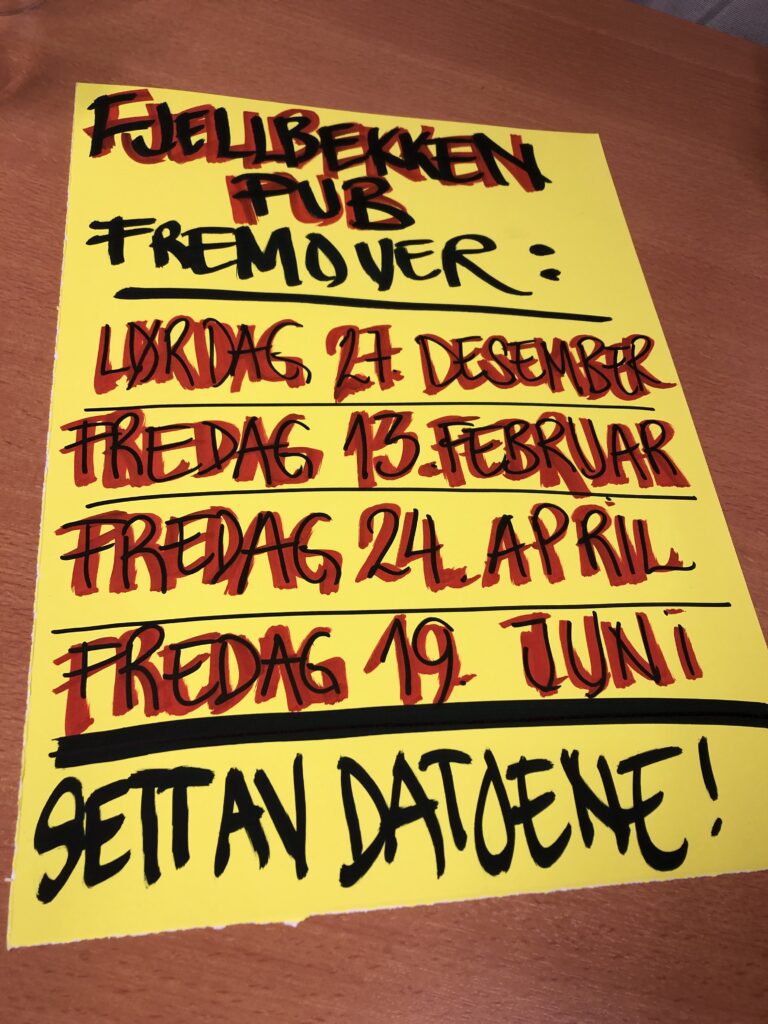 FJELLBEKKEN
PUB
FREMOVER:
LØRDAG 27. DESEMBER
FREDAG 13. FEBRUAR
FREDAG 24. APRIL
FREDAG 19. JUNI
SETT AV DATOENE!